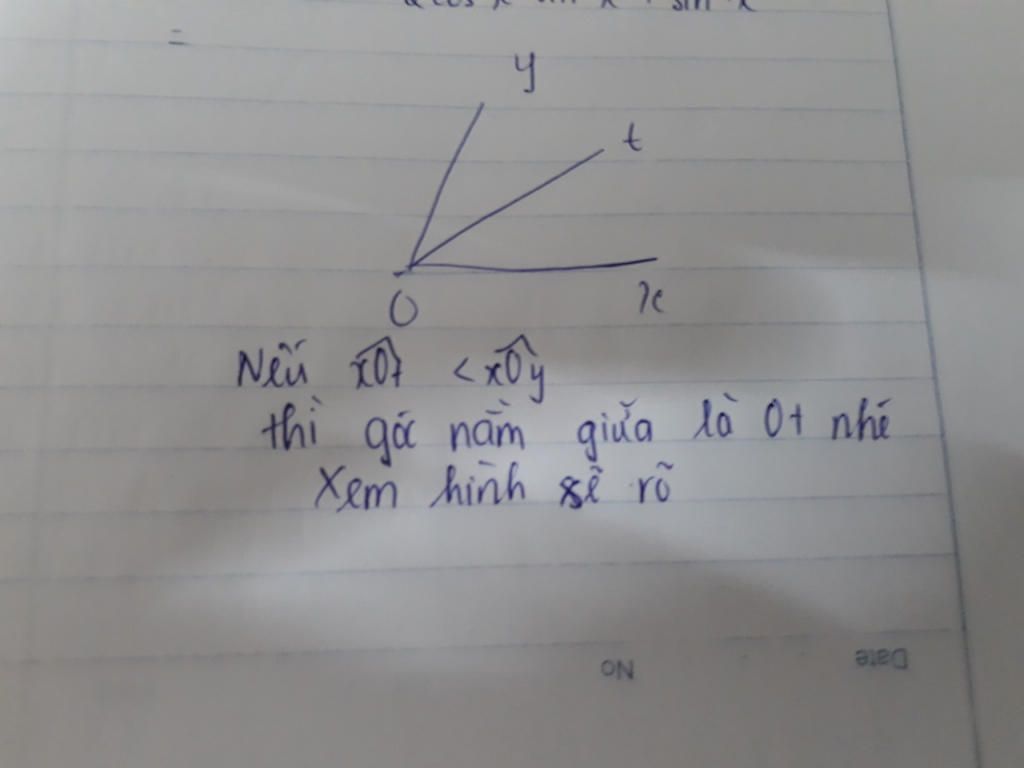 =
y
t
O
x
Nếu xOt < xOy
thì góc nằm giữa là Ot nhé
Xem hình sẽ rõ
No
Date